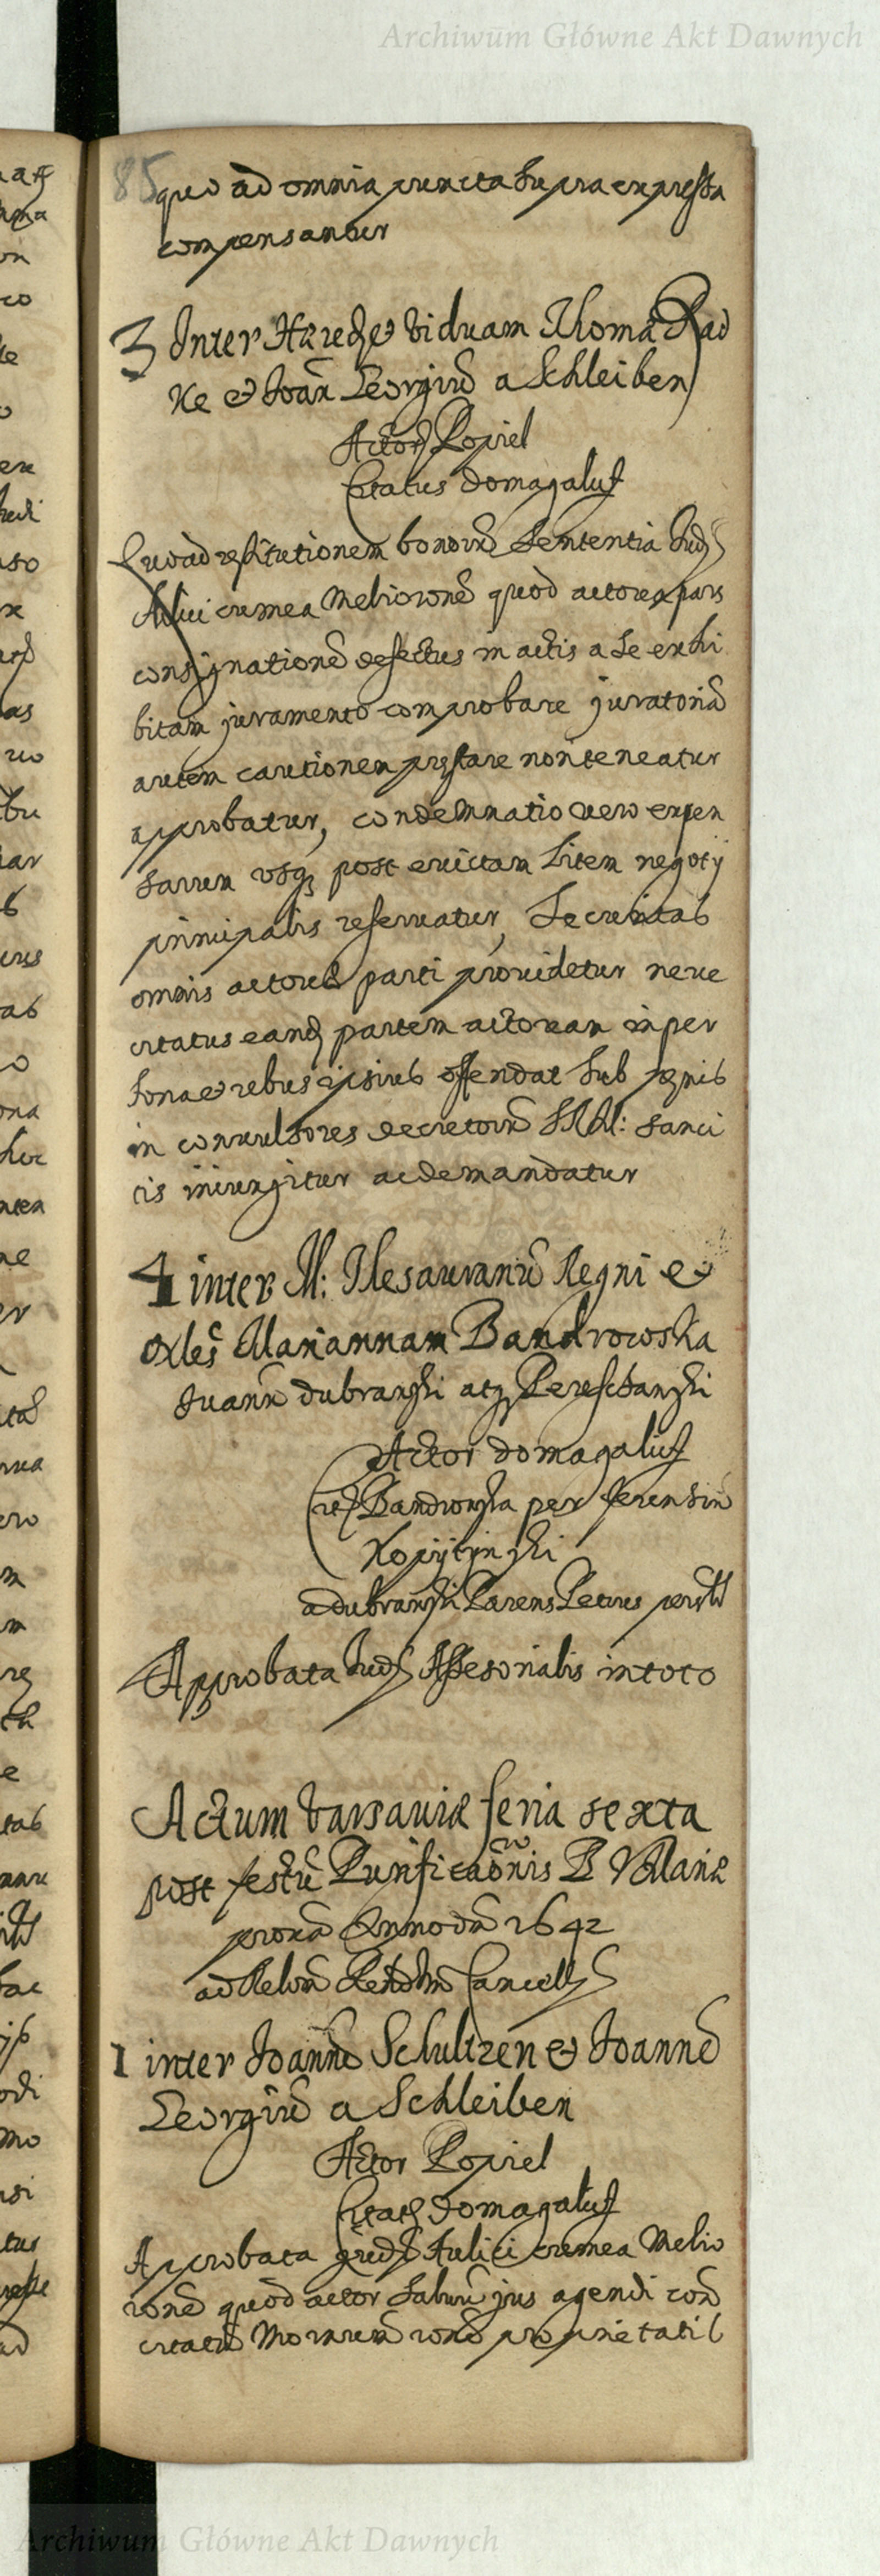 Archiwum Główne Akt Dawnych
85
quo ad omnia puncta supra expressa
compensantur
3 Inter Hæred; et viduam Thomæ Rad
Ke et Joan̄ Georgiū a Schleiben
Actor; Popiel
Citatus Domagaluſ
Quoad restitutionem bonorū Sententia Jud;
Aulici cum ea Melioronē quod actorea pars
consignationē defectus in actis a se exhi
bitam juramento comprobare juratoriā
autem cautionem præstare non teneatur
approbatur, condemnatio vero expen
sarum usq; post evictam Litem negotÿ
principalis reservatur, Securitas
omnis actoreæ parti providetur neve
citatus eand; partem actoream in per
sona et rebus ipsius offendat sub pœnis
in convulsores decretorū SRM: sanci
tis iniungitur ac demandatur
4 inter M: Thesaurariū Regni et
Mariannam Bandrowska
Joannē Dubranski atq; Pereschanski
Actor Domagaluſ
Bandrowska per ferensin
Kopijtynski
a Dubranski Parens Petrus
Approbata Jud; Assesorialis in toto
Actum Varsaviæ feria sexta
post festū Purificaōnis B V Mariæ
proxā Anno dn̄i 1642
ad Relōn Rendmi Cancell;
1 inter Joannē Schultzen et Joannē
Georgiū a Schleiben
Actor Popiel
Citat; Domagaluſ
Approbata Jud; Aulici cum ea Melio
ronē quod actor salvū jus agendi con
citatū rōne proprietatis
Archiwum Główne Akt Dawnych